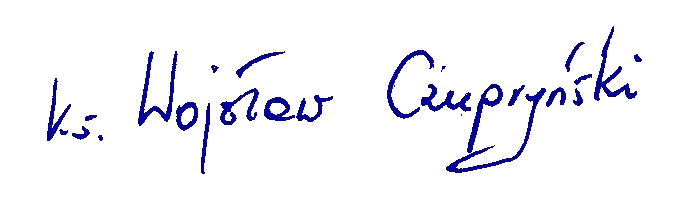 ks. Wojsław Czupryński